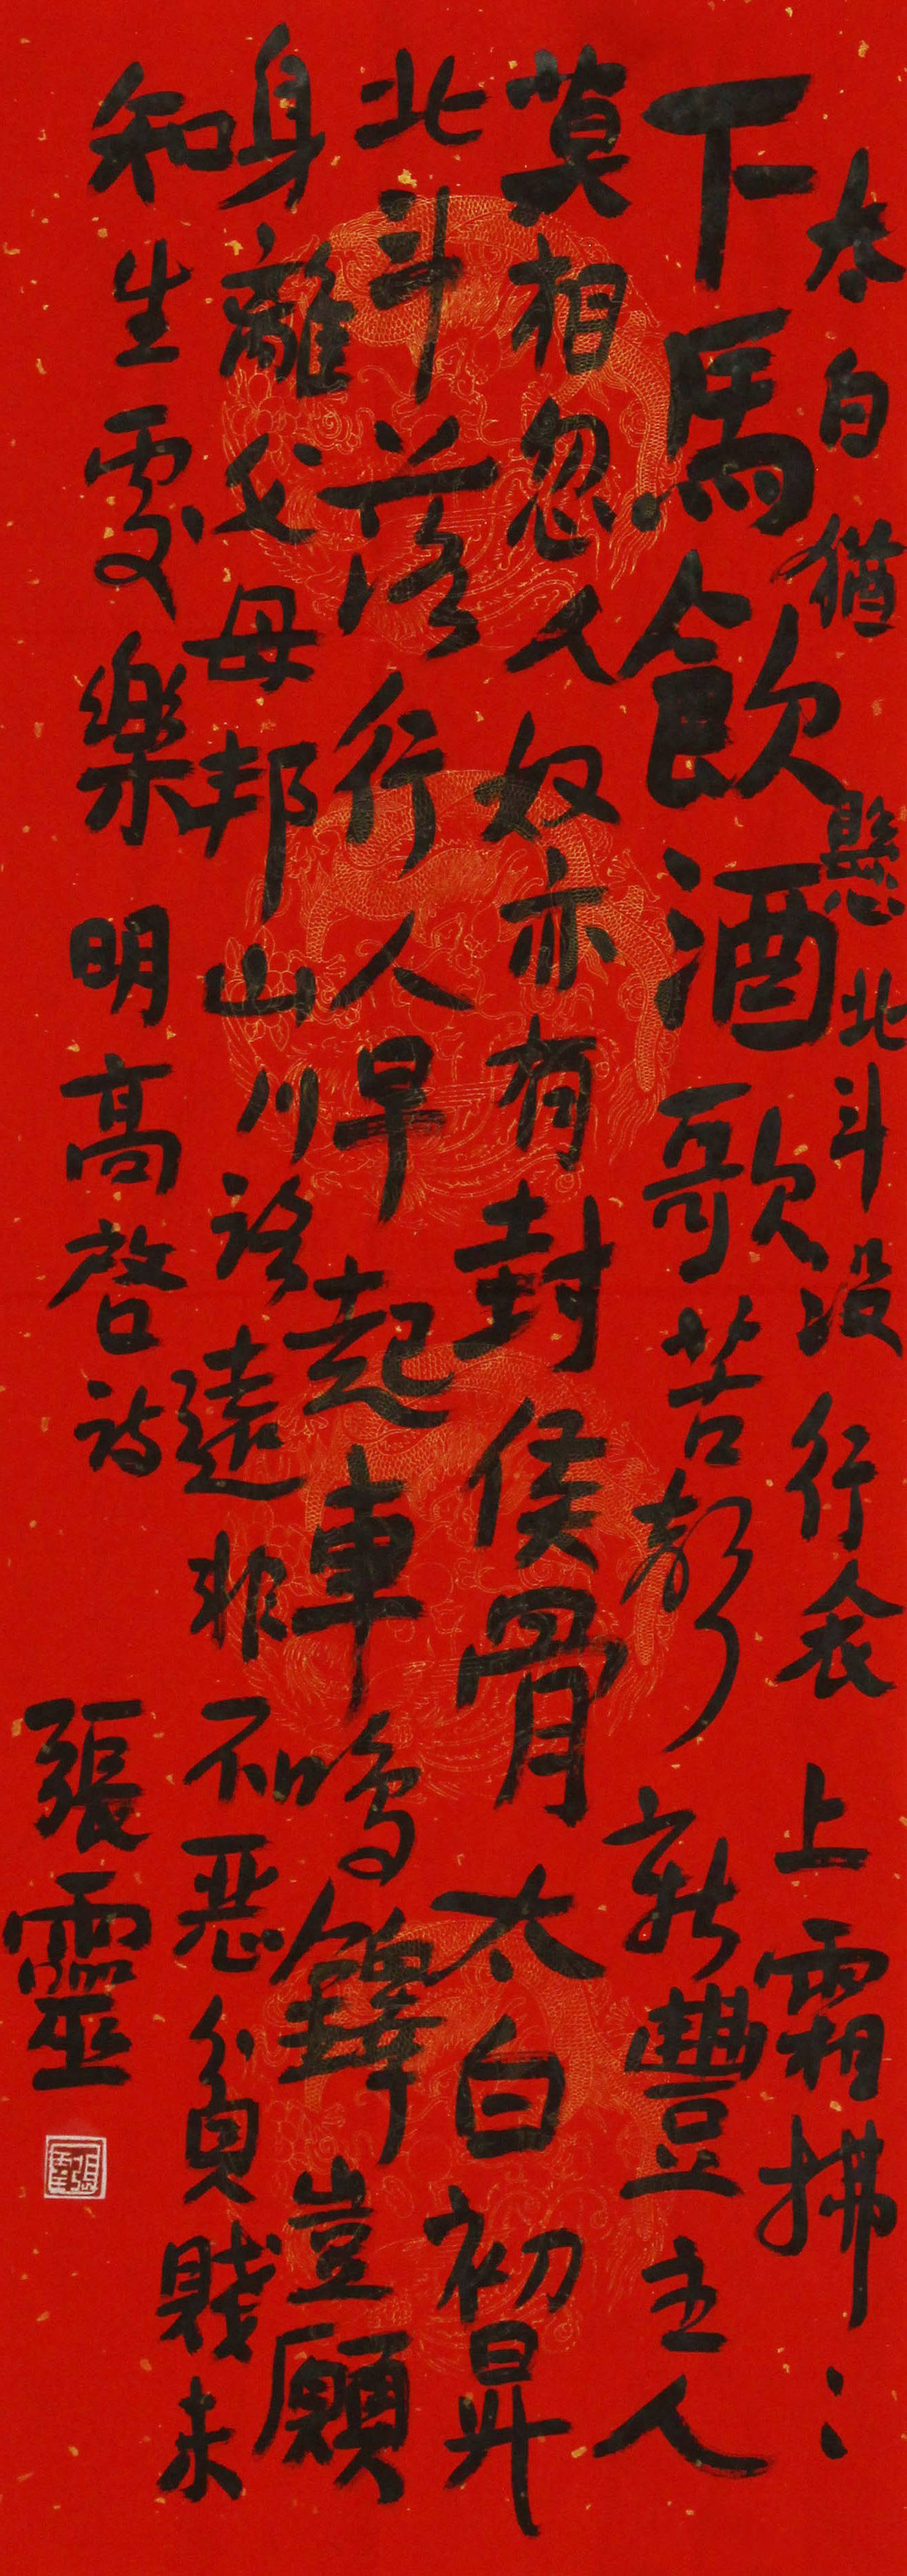 太白猶懸北斗没行衾上霜拂〻
下馬飲酒歌苦聲新豐主人
莫相忽人奴亦有封侯骨太白初昇
北斗落行人早起車鳴鐸豈願
身離父母邦山川路遠非不惡貧賤未
知生處樂明高啓詩
張靈
張靈